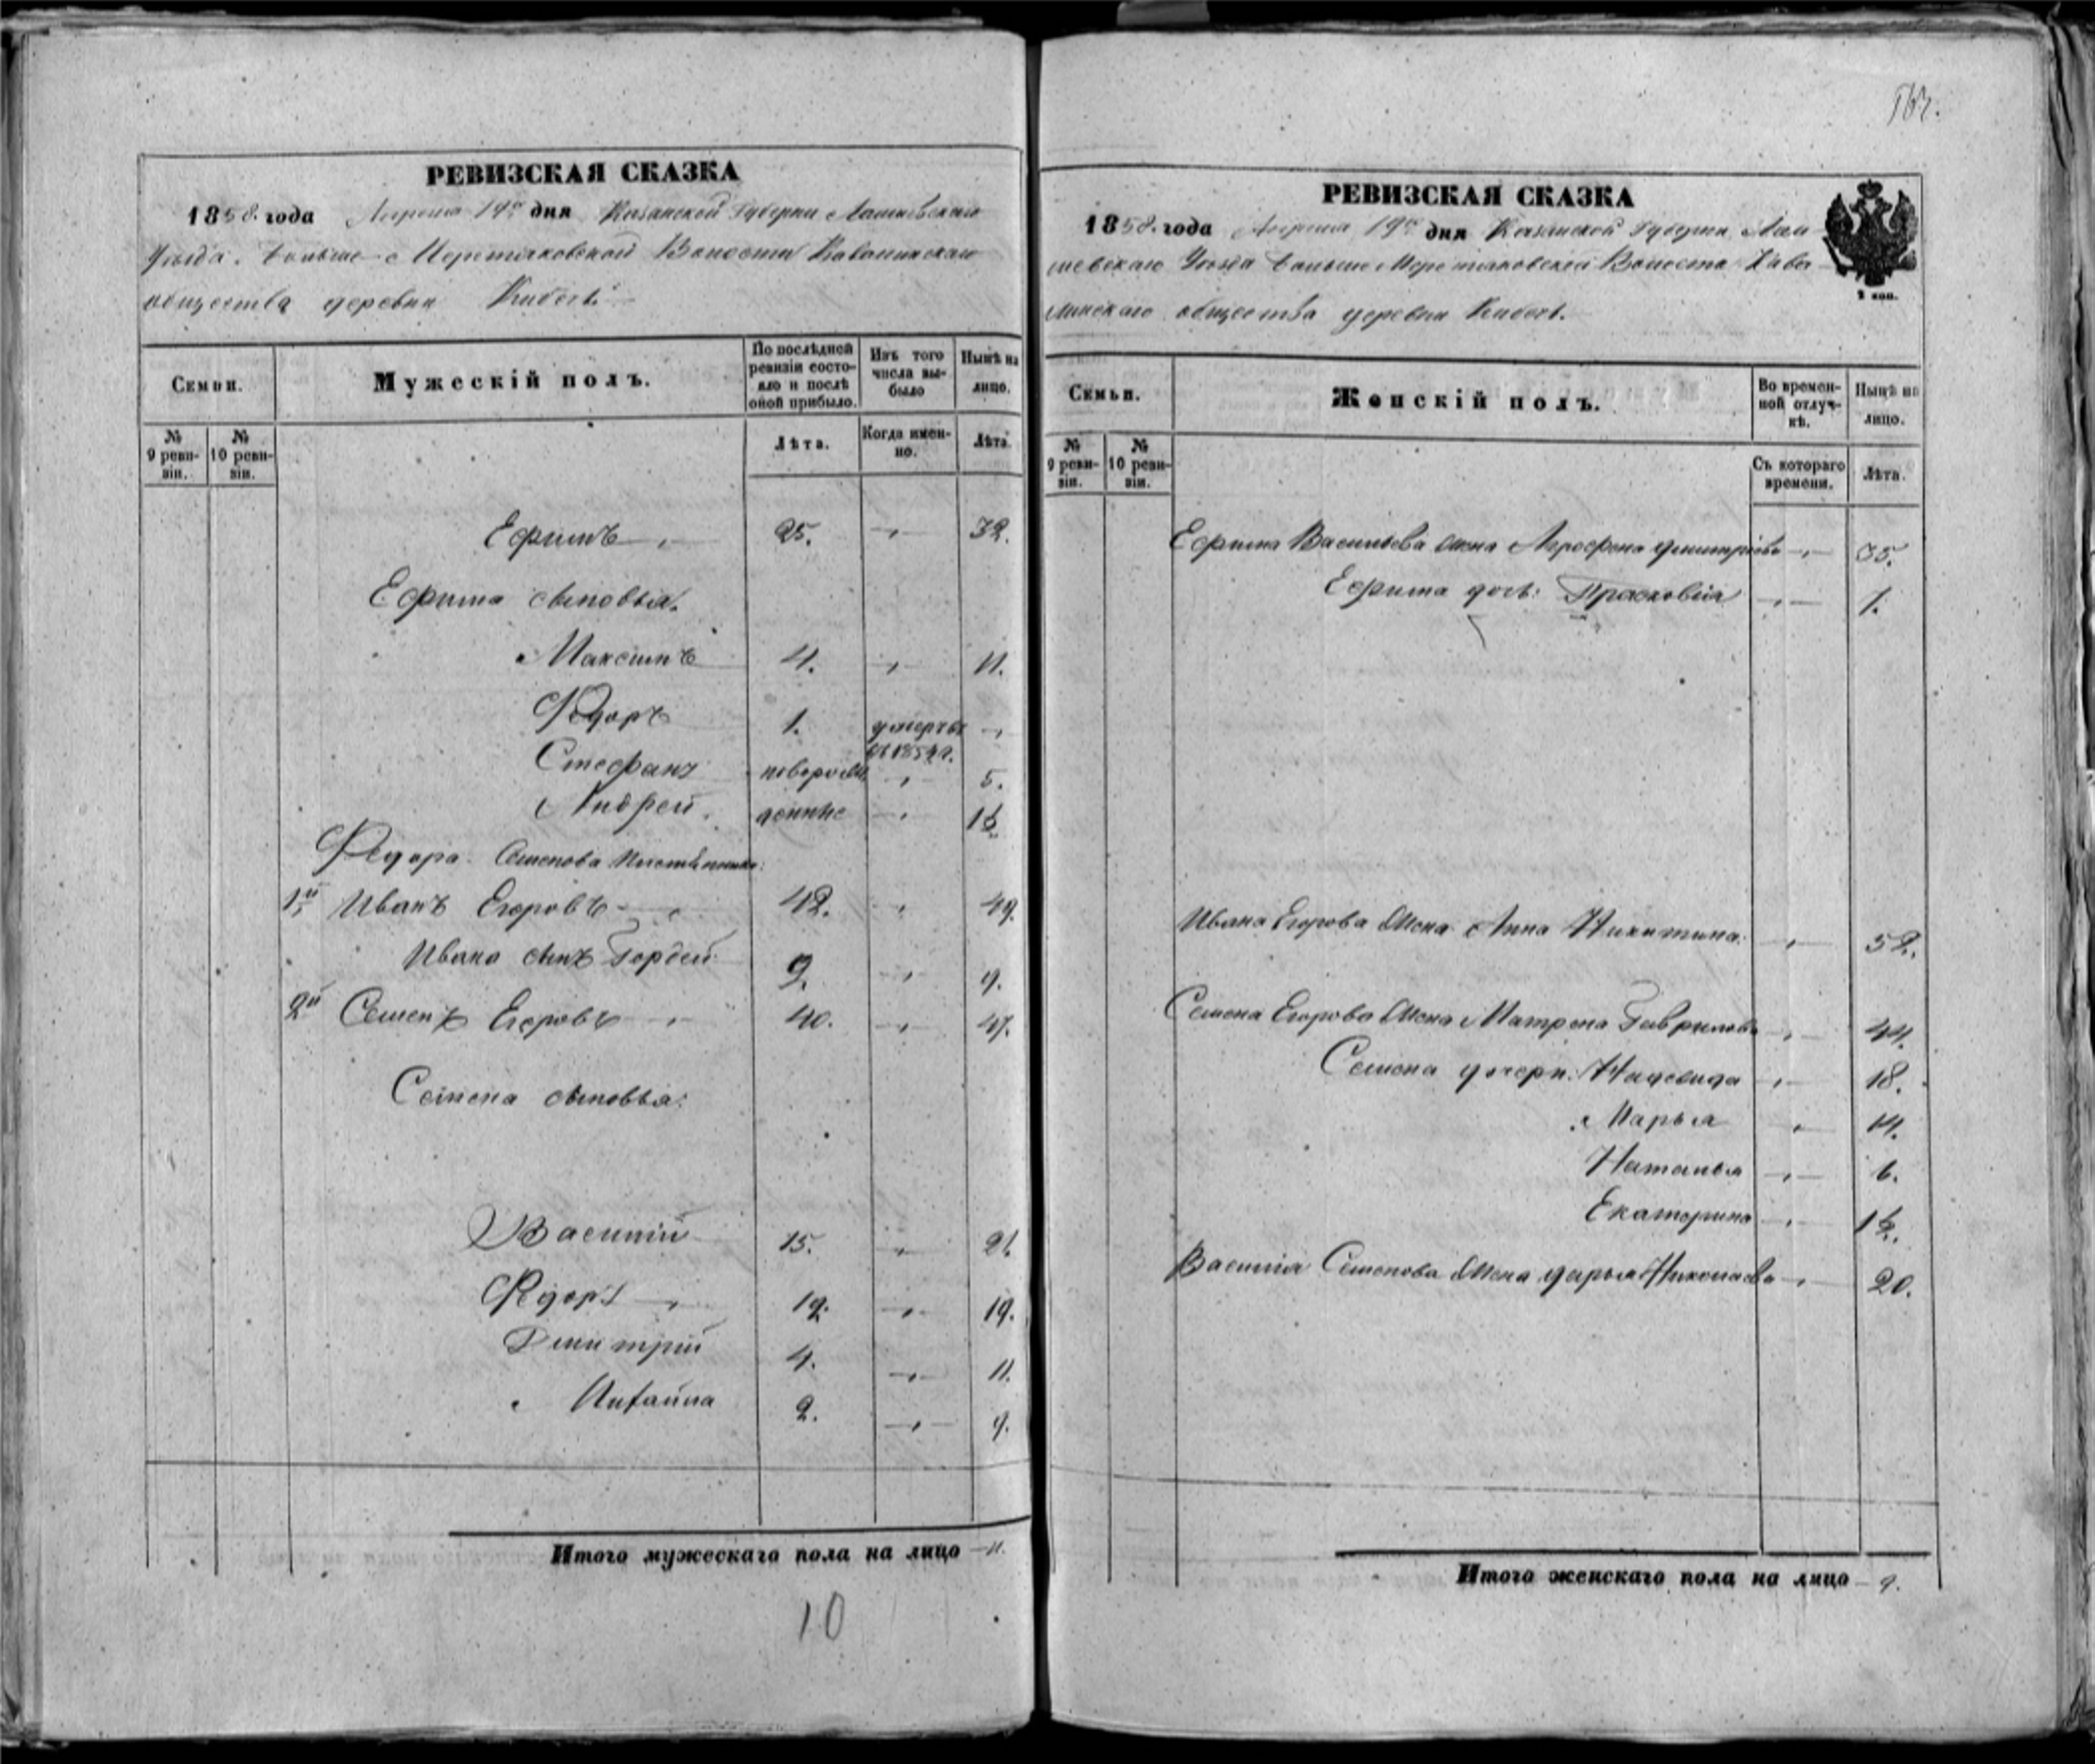 РЕВИЗСКАЯ СКАЗКА
1858. года Апреля 19го дня Казанской Губернии Лаишевскаго
Уезда, Больше-Меретяковской Волости Каволинскаго
общества деревни
Семьи.
Мужескій полъ.
По послѣдней ревизіи состояло и послѣ оной прибыло.
Изъ того числа выбыло
Нынѣ на лицо.
№ 9 ревизіи.
№ 10 ревизіи.
Лѣта.
Когда именно.
Лѣта.
Ефимъ 25. 32.
Ефима сыновья.
Максимъ 4. 11.
Федоръ 1. умеръ въ 1854 г.
Стефанъ новорож 5.
Андрей денные 1½
Федора Семенова племянники:
1й Иванъ Егоровъ 42. 49.
Ивана сынъ Гордей 2. 9.
2й Семенъ Егоровъ 40. 47.
Семена сыновья:
Василій 15. 21.
Федоръ 12. 19.
Дмитрій 4. 11.
Михайла 2. 9.
Итого мужескаго пола на лицо 11.
10
РЕВИЗСКАЯ СКАЗКА
1858. года Апреля 19го дня Казанской Губернии Лаи-
шевскаго Уезда Больше Меретяковской Волости Каво-
линскаго общества деревни
2 коп.
Семьи.
Женскій полъ.
Во временной отлучкѣ.
Нынѣ на лицо.
№ 9 ревизіи.
№ 10 ревизіи.
Съ котораго времени.
Лѣта.
Ефима Васильева жена Агрофена Дмитріева 35.
Ефима дочь: Прасковія 1.
Ивана Егорова жена Анна Никитина 52.
Семена Егорова жена Матрена Гаврилова 44.
Семена дочери: 18.
Марья 14.
Наталья 6.
Екатерина 1½.
Василія Семенова жена Дарья Николаева 20.
Итого женскаго пола на лицо 9.